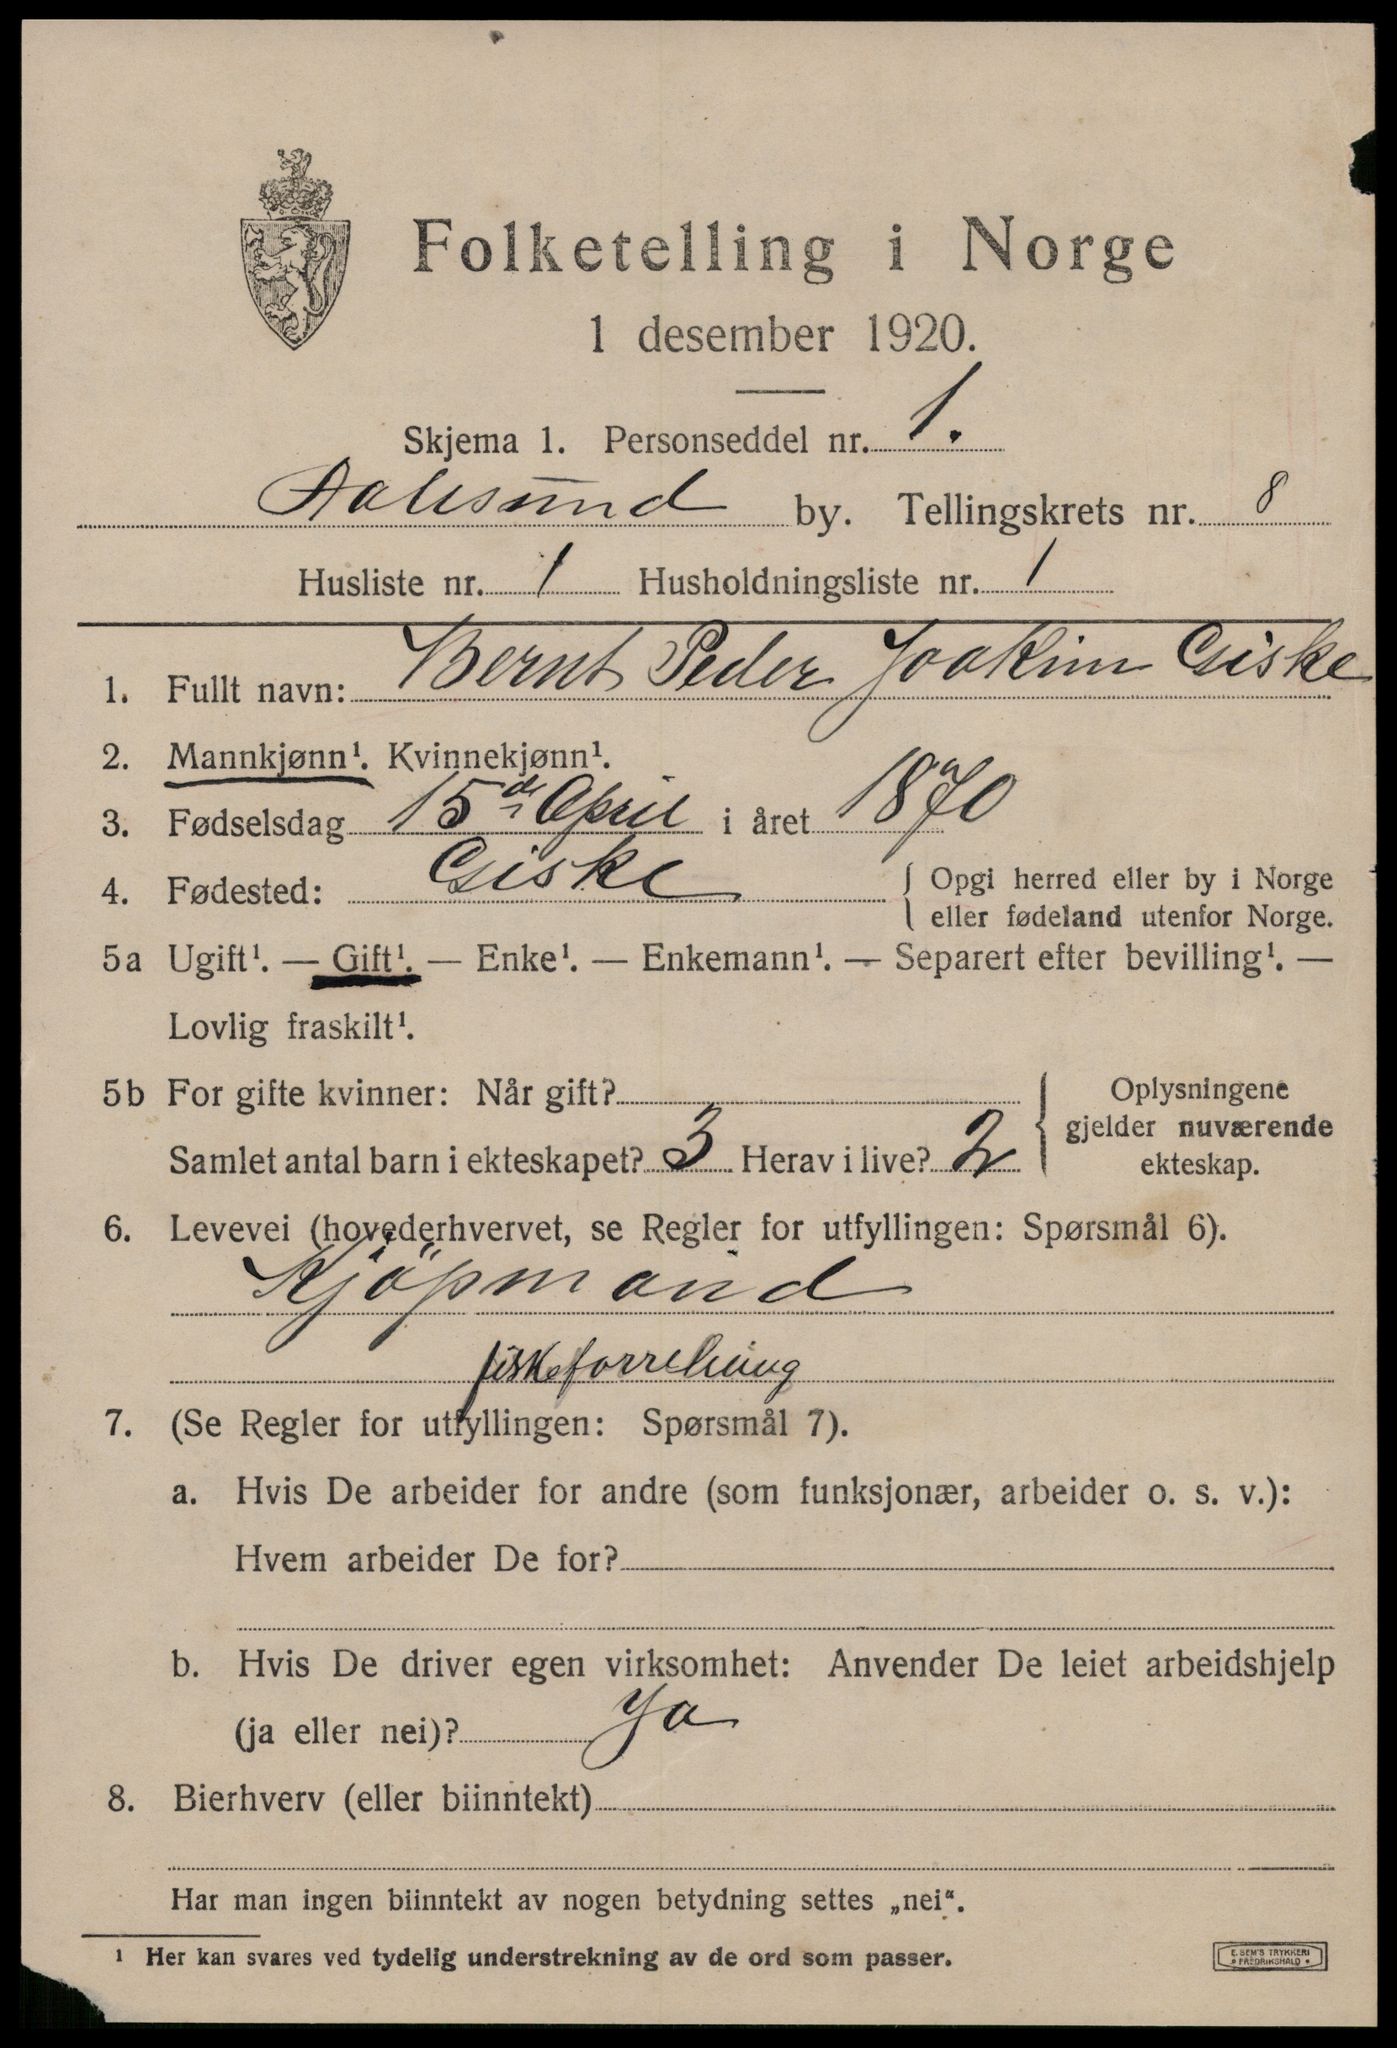 Folketelling i Norge
1 desember 1920.
Skjema 1. Personseddel nr. 1.
Aalesund by. Tellingskrets nr. 8
Husliste nr. 1 Husholdningsliste nr. 1
1. Fullt navn: Bernt Peder Joakim Giske
2. Mannkjønn¹. Kvinnekjønn¹.
3. Fødselsdag 15de April i året 1870
4. Fødested: Giske { Opgi herred eller by i Norge
eller fødeland utenfor Norge.
5a Ugift¹. — Gift¹. — Enke¹. — Enkemann¹. — Separert efter bevilling¹. —
Lovlig fraskilt¹.
5b For gifte kvinner: Når gift?
Samlet antal barn i ekteskapet? 3 Herav i live? 2
Oplysningene
gjelder nuværende
ekteskap.
6. Levevei (hovederhvervet, se Regler for utfyllingen: Spørsmål 6).
Kjöpmand
fiskeforretning
7. (Se Regler for utfyllingen: Spørsmål 7).
a. Hvis De arbeider for andre (som funksjonær, arbeider o. s. v.):
Hvem arbeider De for?
b. Hvis De driver egen virksomhet: Anvender De leiet arbeidshjelp
(ja eller nei)? Ja
8. Bierhverv (eller biinntekt)
Har man ingen biinntekt av nogen betydning settes „nei“.
¹ Her kan svares ved tydelig understrekning av de ord som passer.
E. SEM'S TRYKKERI
• FREDRIKSHALD •